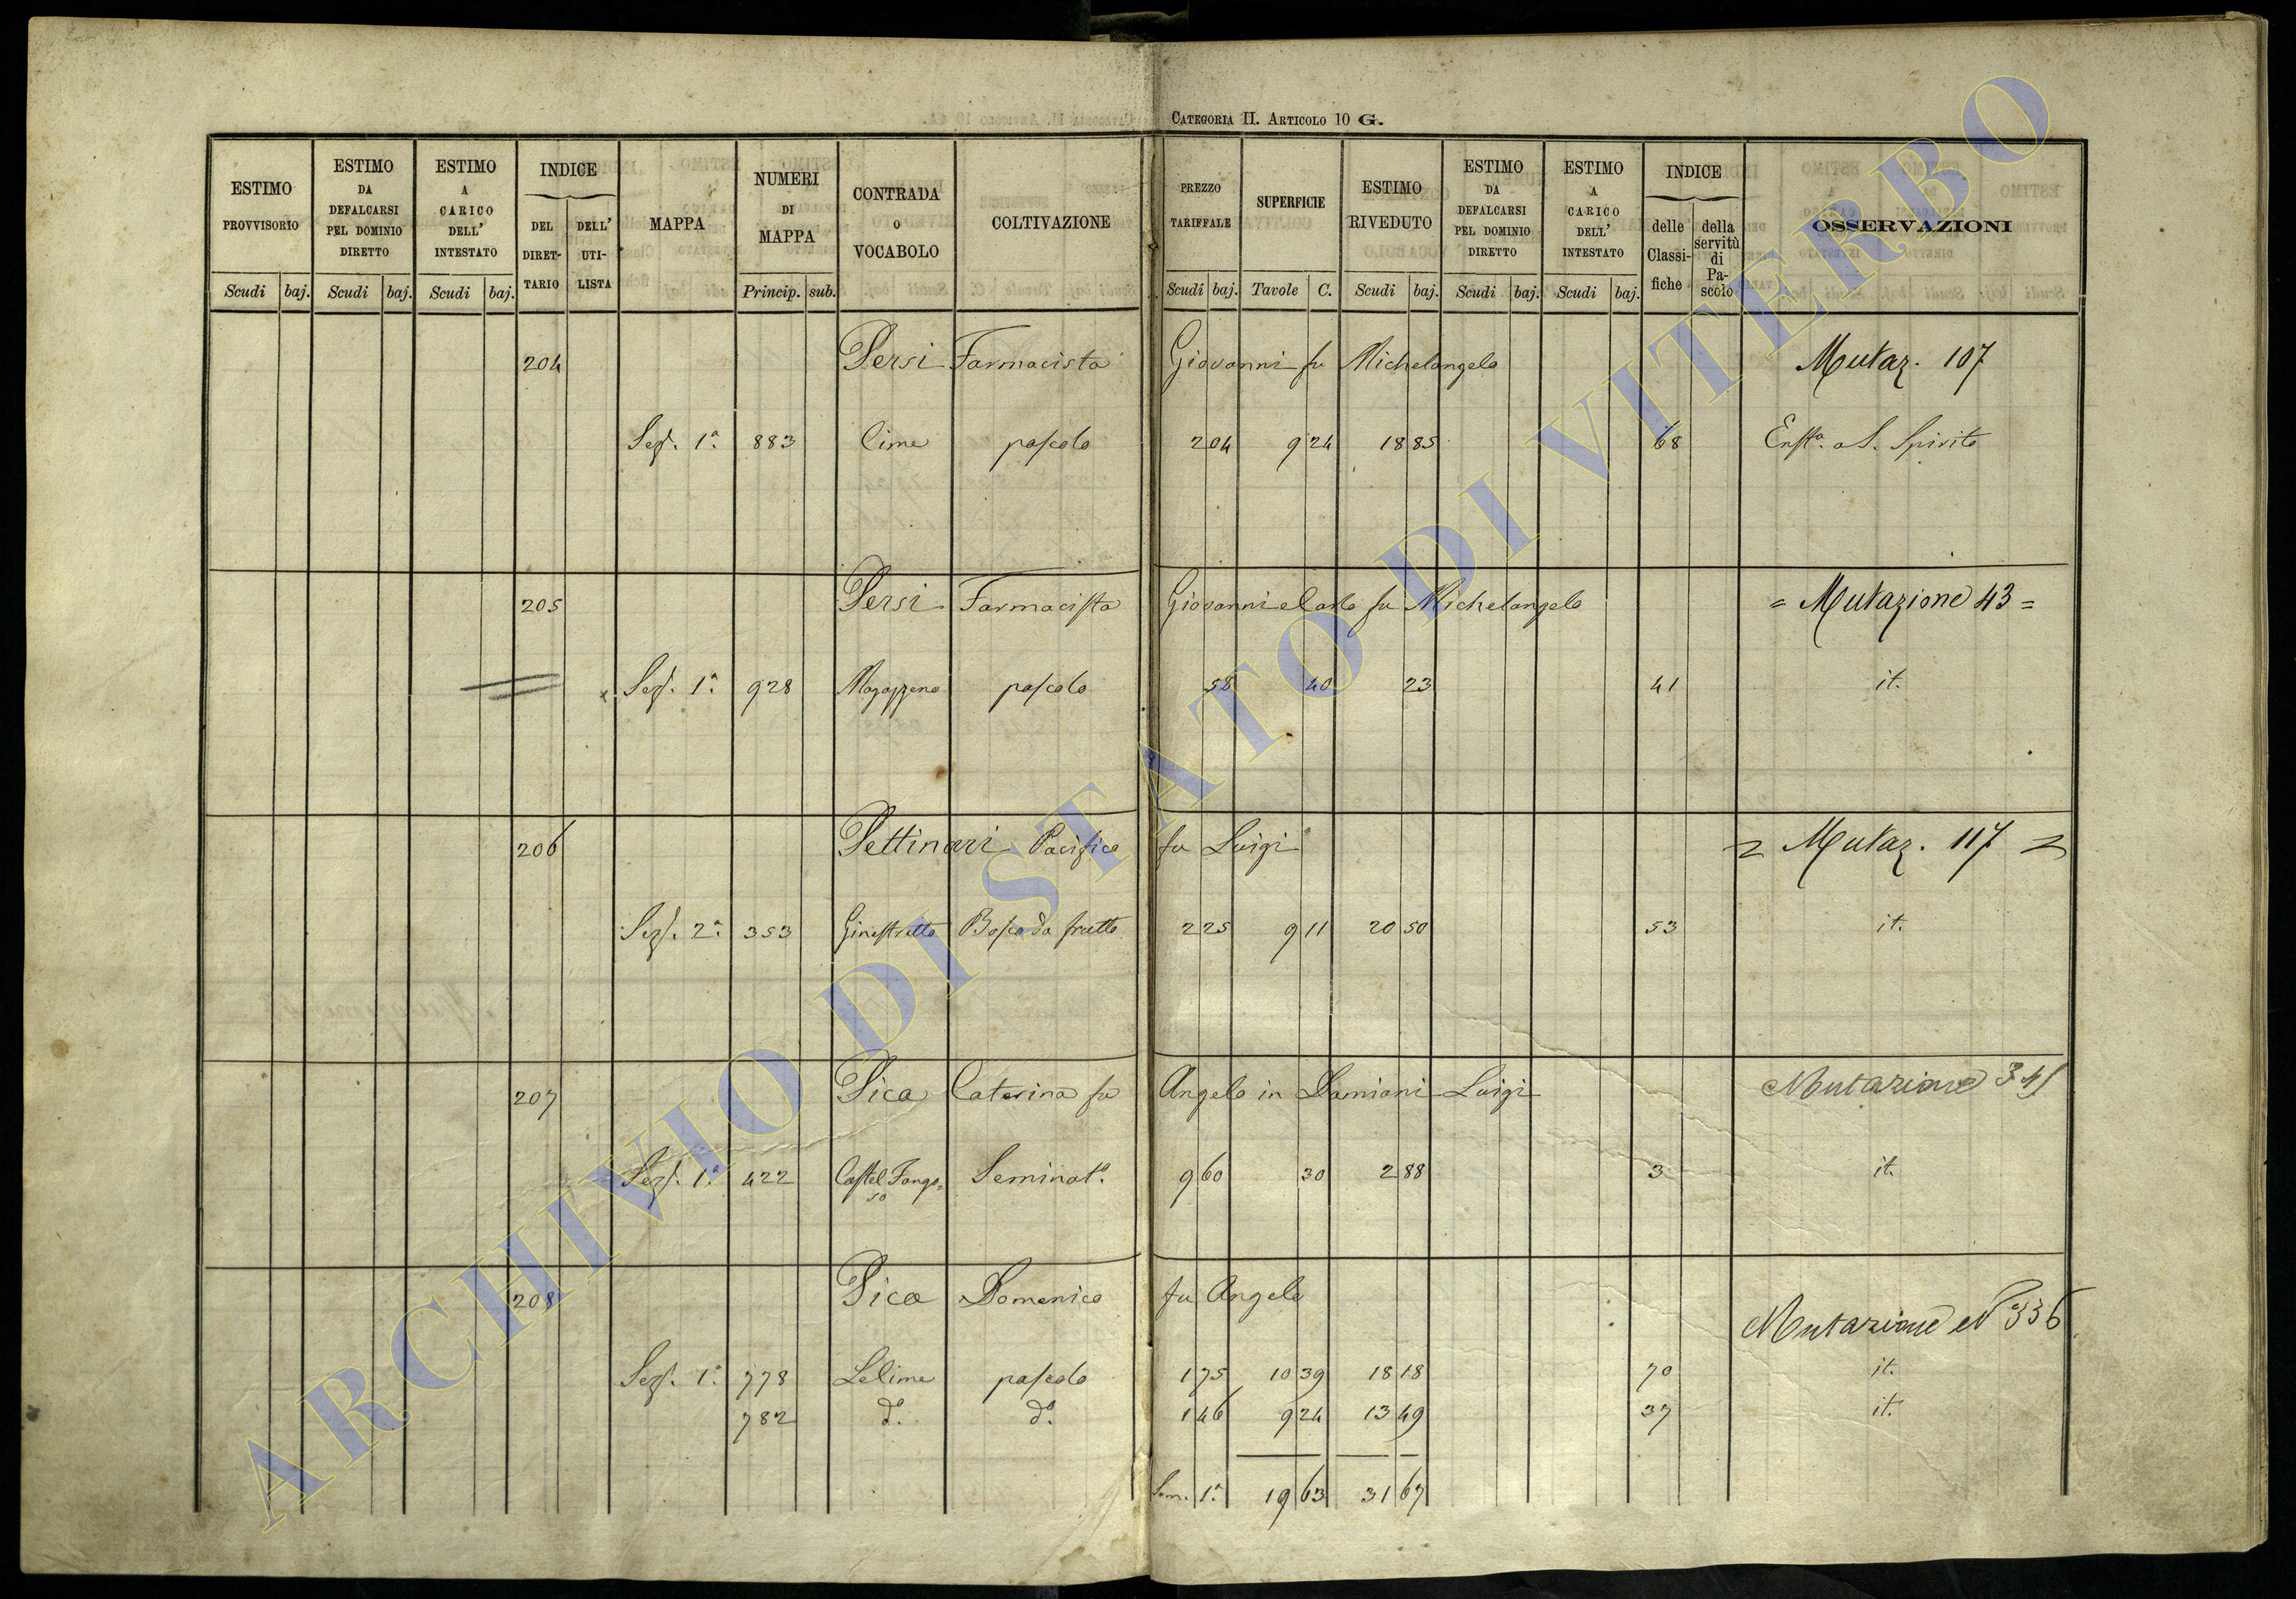 CATEGORIA II. ARTICOLO 10 G.
ESTIMO PROVVISORIO Scudi baj.
ESTIMO DA DEFALCARSI PEL DOMINIO DIRETTO Scudi baj.
ESTIMO A CARICO DELL' INTESTATO Scudi baj.
INDICE DEL DIRET-TARIO DELL' UTI-LISTA
MAPPA
NUMERI DI MAPPA Princip. sub.
CONTRADA O VOCABOLO
COLTIVAZIONE
PREZZO TARIFFALE Scudi baj.
SUPERFICIE Tavole C.
ESTIMO RIVEDUTO Scudi baj.
ESTIMO DA DEFALCARSI PEL DOMINIO DIRETTO Scudi baj.
ESTIMO A CARICO DELL' INTESTATO Scudi baj.
INDICE delle Classi-fiche della servitù di Pa-scolo
OSSERVAZIONI
204 Persi Farmacista Giovanni fu Michelangelo Mutaz. 107
Sez. 1ª 883 Cime pascolo 2 04 9 24 18 85 68 Enfta. a S. Spirito
205 Persi Farmacista Giovanni e Carlo fu Michelangelo = Mutazione 43 =
Sez. 1ª 928 Magazzeno pascolo 58 40 23 41 it.
206 Pettinari Pacifico fu Luigi Mutaz. 117
Sez. 2ª 353 Ginestretto Bosco da frutto 2 25 9 11 20 50 53 it.
207 Pica Caterina fu Angelo in Damiani Luigi Mutazione
Sez. 1ª 422 Castel Fango= Seminato. 9 60 30 2 88 3 it.
so
208 Pica Domenico fu Angelo
Mutazione N° 336
Sez. 1ª 778 Le Cime pascolo 1 75 10 39 18 18 70 it.
782 do. do. 1 46 9 24 13 49 37 it.
Som. 1ª 19 63 31 67
ARCHIVIO DI STATO DI VITERBO